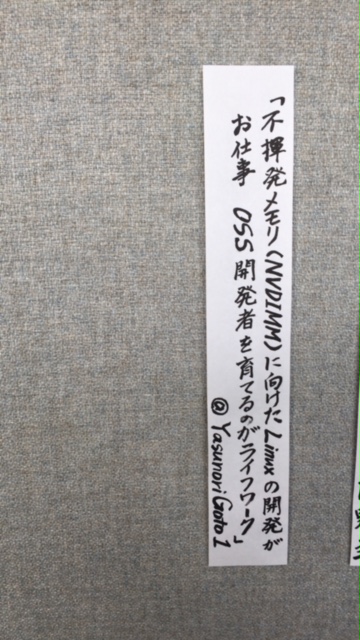 「不揮発メモリ(NVDIMM)に向けたLinuxの開発が
お仕事　OSS開発者を育てるのがライフワーク」
@YasunoriGoto1